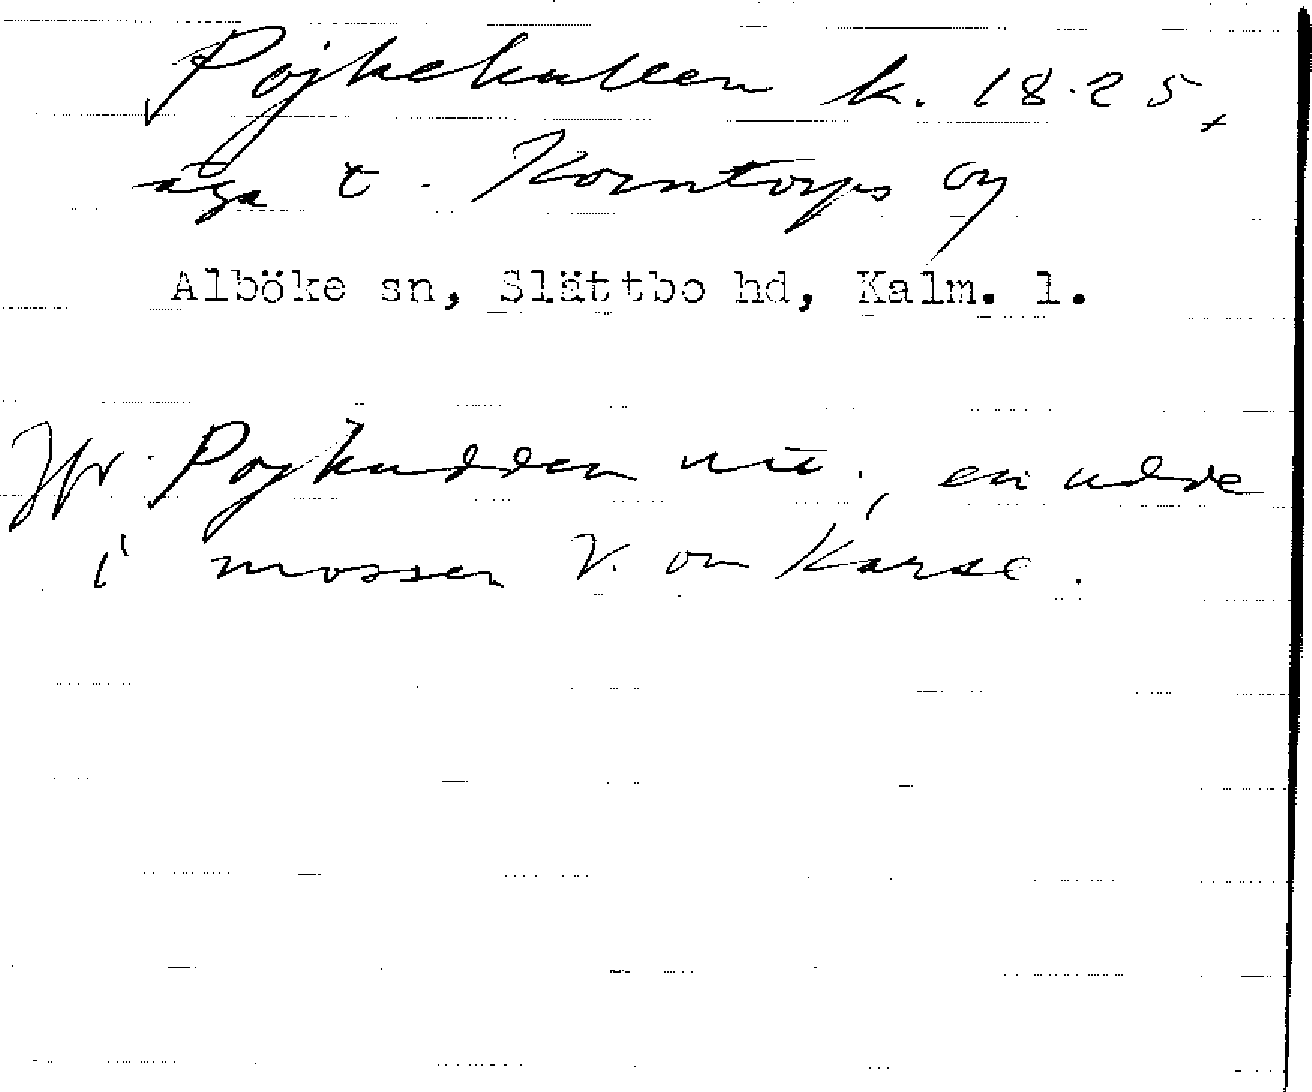 Pojkekullen k. 1825,
äga t. Korntorps by
Alböke sn, Slättbo hd, Kalm. l.
Jfr Pojkudden nu., en udde
i mossen V. om Karse.